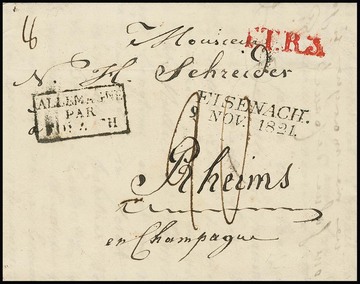 à Monsieur
T.R.3
N. H. Schreider
ALLEMAGNE
PAR
EISENACH.
9 NOV. 1821.
Rheims
en Champagne